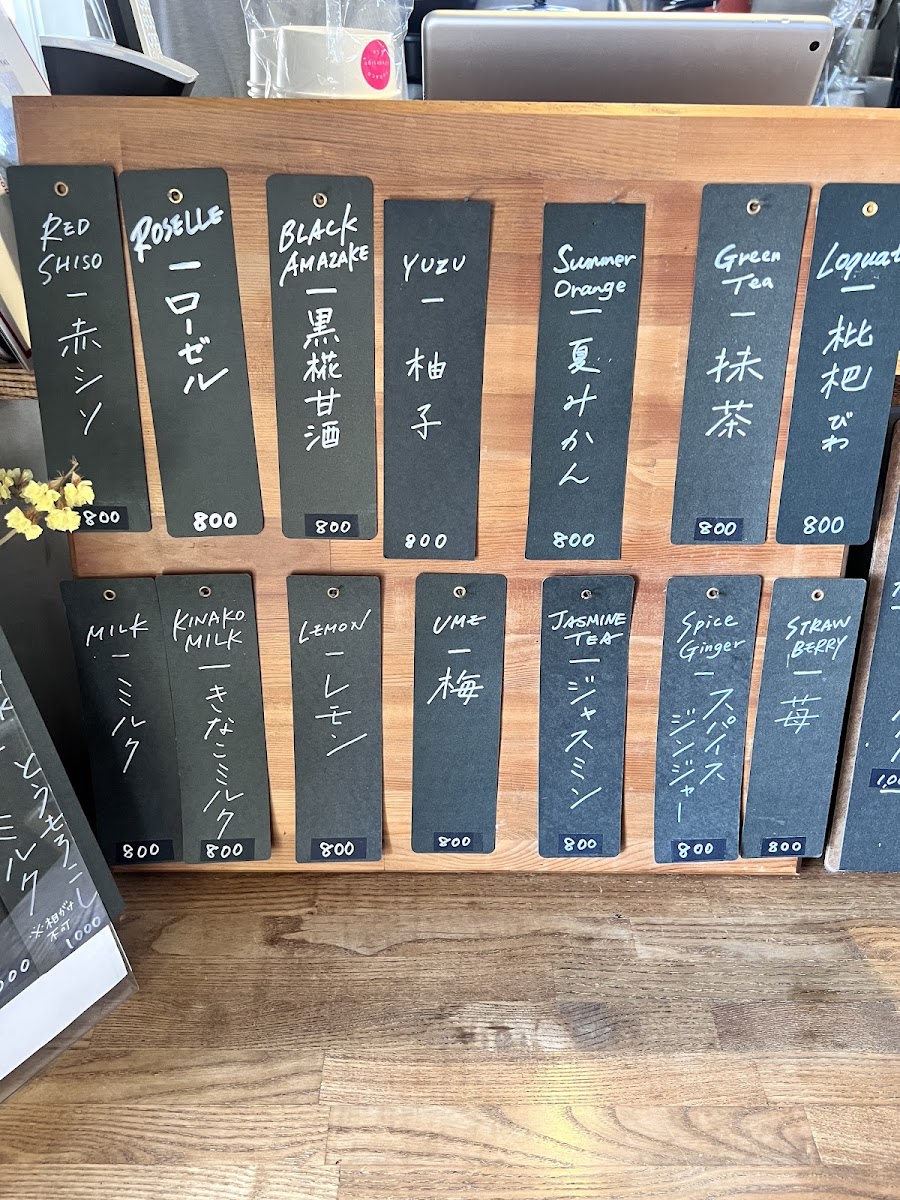 RED
SHISO
ー
赤シソ
800
ROSELLE
ー
ローゼル
800
BLACK
AMAZAKE
ー
黒糀甘酒
800
YUZU
ー
柚子
800
Summer
Orange
ー
夏みかん
800
Green
Tea
ー
抹茶
800
Loquat
ー
枇杷
びわ
800
MILK
ー
ミルク
800
KINAKO
MILK
ー
きなこミルク
800
LEMON
ー
レモン
800
UME
ー
梅
800
JASMINE
TEA
ー
ジャスミン
800
Spice
Ginger
ー
スパイス
ジンジャー
800
STRAW
BERRY
ー
苺
800
とうもろこし
ミルク
※相がけ
不可
1000